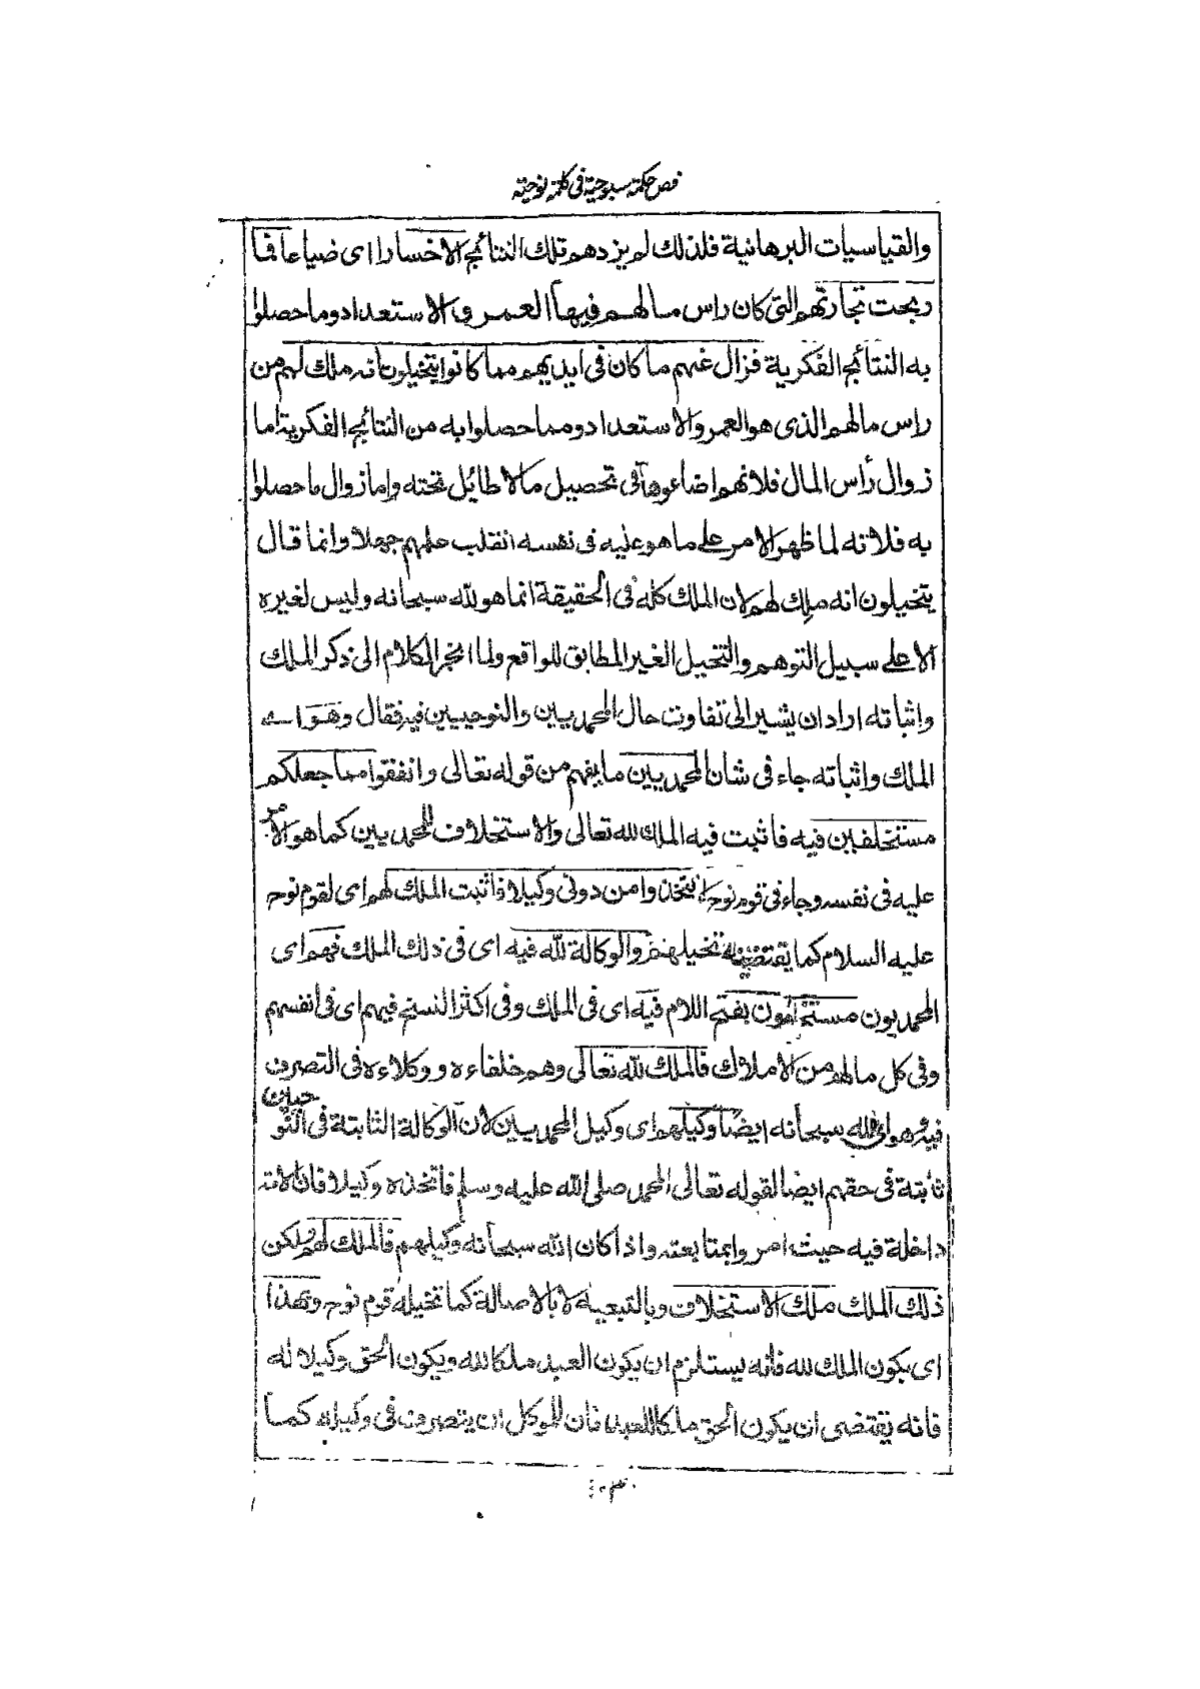 فص حكمة سبوحية فى كلمة نوحية
والقياسيات البرهانية فلذلك لم يزدهم تلك النتائج الا خسارا اى ضياعا فما
ربحت تجارتهم التى كان راس مالهم فيها العمر و الاستعداد وما حصلوا
به النتائج الفكرية فزال عنهم ما كان فى ايديهم مما كانوا يتخيلون انه ملك لهم من
راس مالهم الذى هو العمر والاستعداد ومما حصلوا به من النتائج الفكرية اما
زوال رأس المال فلانهم اضاعوها فى تحصيل ما لا طائل تحته واما زوال ما حصلوا
به فلانه لما ظهر الامر على ما هو عليه فى نفسه انقلب علمهم جهلا وانما قال
يتخيلون انه ملك لهم لان الملك كله فى الحقيقة انما هو لله سبحانه وليس لغيره
الا على سبيل التوهم والتخيل الغير المطابق للواقع ولما انجر الكلام الى ذكر الملك
واثباته اراد ان يشير الى تفاوت حال المحمديين والنوحيين فيه فقال وهو اى
الملك واثباته جاء فى شان المحمديين ما يفهم من قوله تعالى وانفقوا مما جعلكم
مستخلفين فيه فاثبت فيه الملك لله تعالى والاستخلاف للمحمديين كما هو الامر
عليه فى نفسه وجاء فى قوم نوح الا تتخذوا من دونى وكيلا فاثبت الملك لهم اى لقوم نوح
عليه السلام كما يقتضيه تخيلهم والوكالة لله فيه اى فى ذلك الملك فهم اى
المحمديون مستخلفون بفتح اللام فيه اى فى الملك وفى اكثر النسخ فيهم اى فى انفسهم
وفى كل مالهم من الاملاك فالملك لله تعالى وهم خلفاءه ووكلاءه فى التصرف
فيه وهو اى الله سبحانه ايضا وكيلهم اى وكيل المحمديين لان الوكالة الثابتة فى النوحيين
ثابتة فى حقهم ايضا لقوله تعالى لمحمد صلى الله عليه وسلم فاتخذه وكيلا فان الامة
داخلة فيه حيث امروا بمتابعته واذا كان الله سبحانه وكيلهم فالملك لهم ولكن
ذلك الملك ملك الاستخلاف وبالتبعية لا بالاصالة كما تخيله قوم نوح وبهذا
اى بكون الملك لله فانه يستلزم ان يكون العبد ملكا لله ويكون الحق وكيلا له
فانه يقتضى ان يكون الحق مالكا للعبد فان للموكل ان يتصرف فى وكيله كما